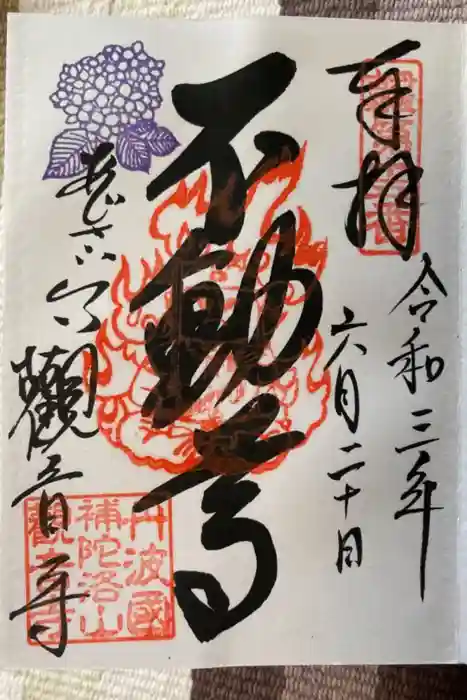 奉拝
令和三年
六月二十日
不動尊
あじさいの
觀音寺
丹波國
補陀洛山
觀音寺